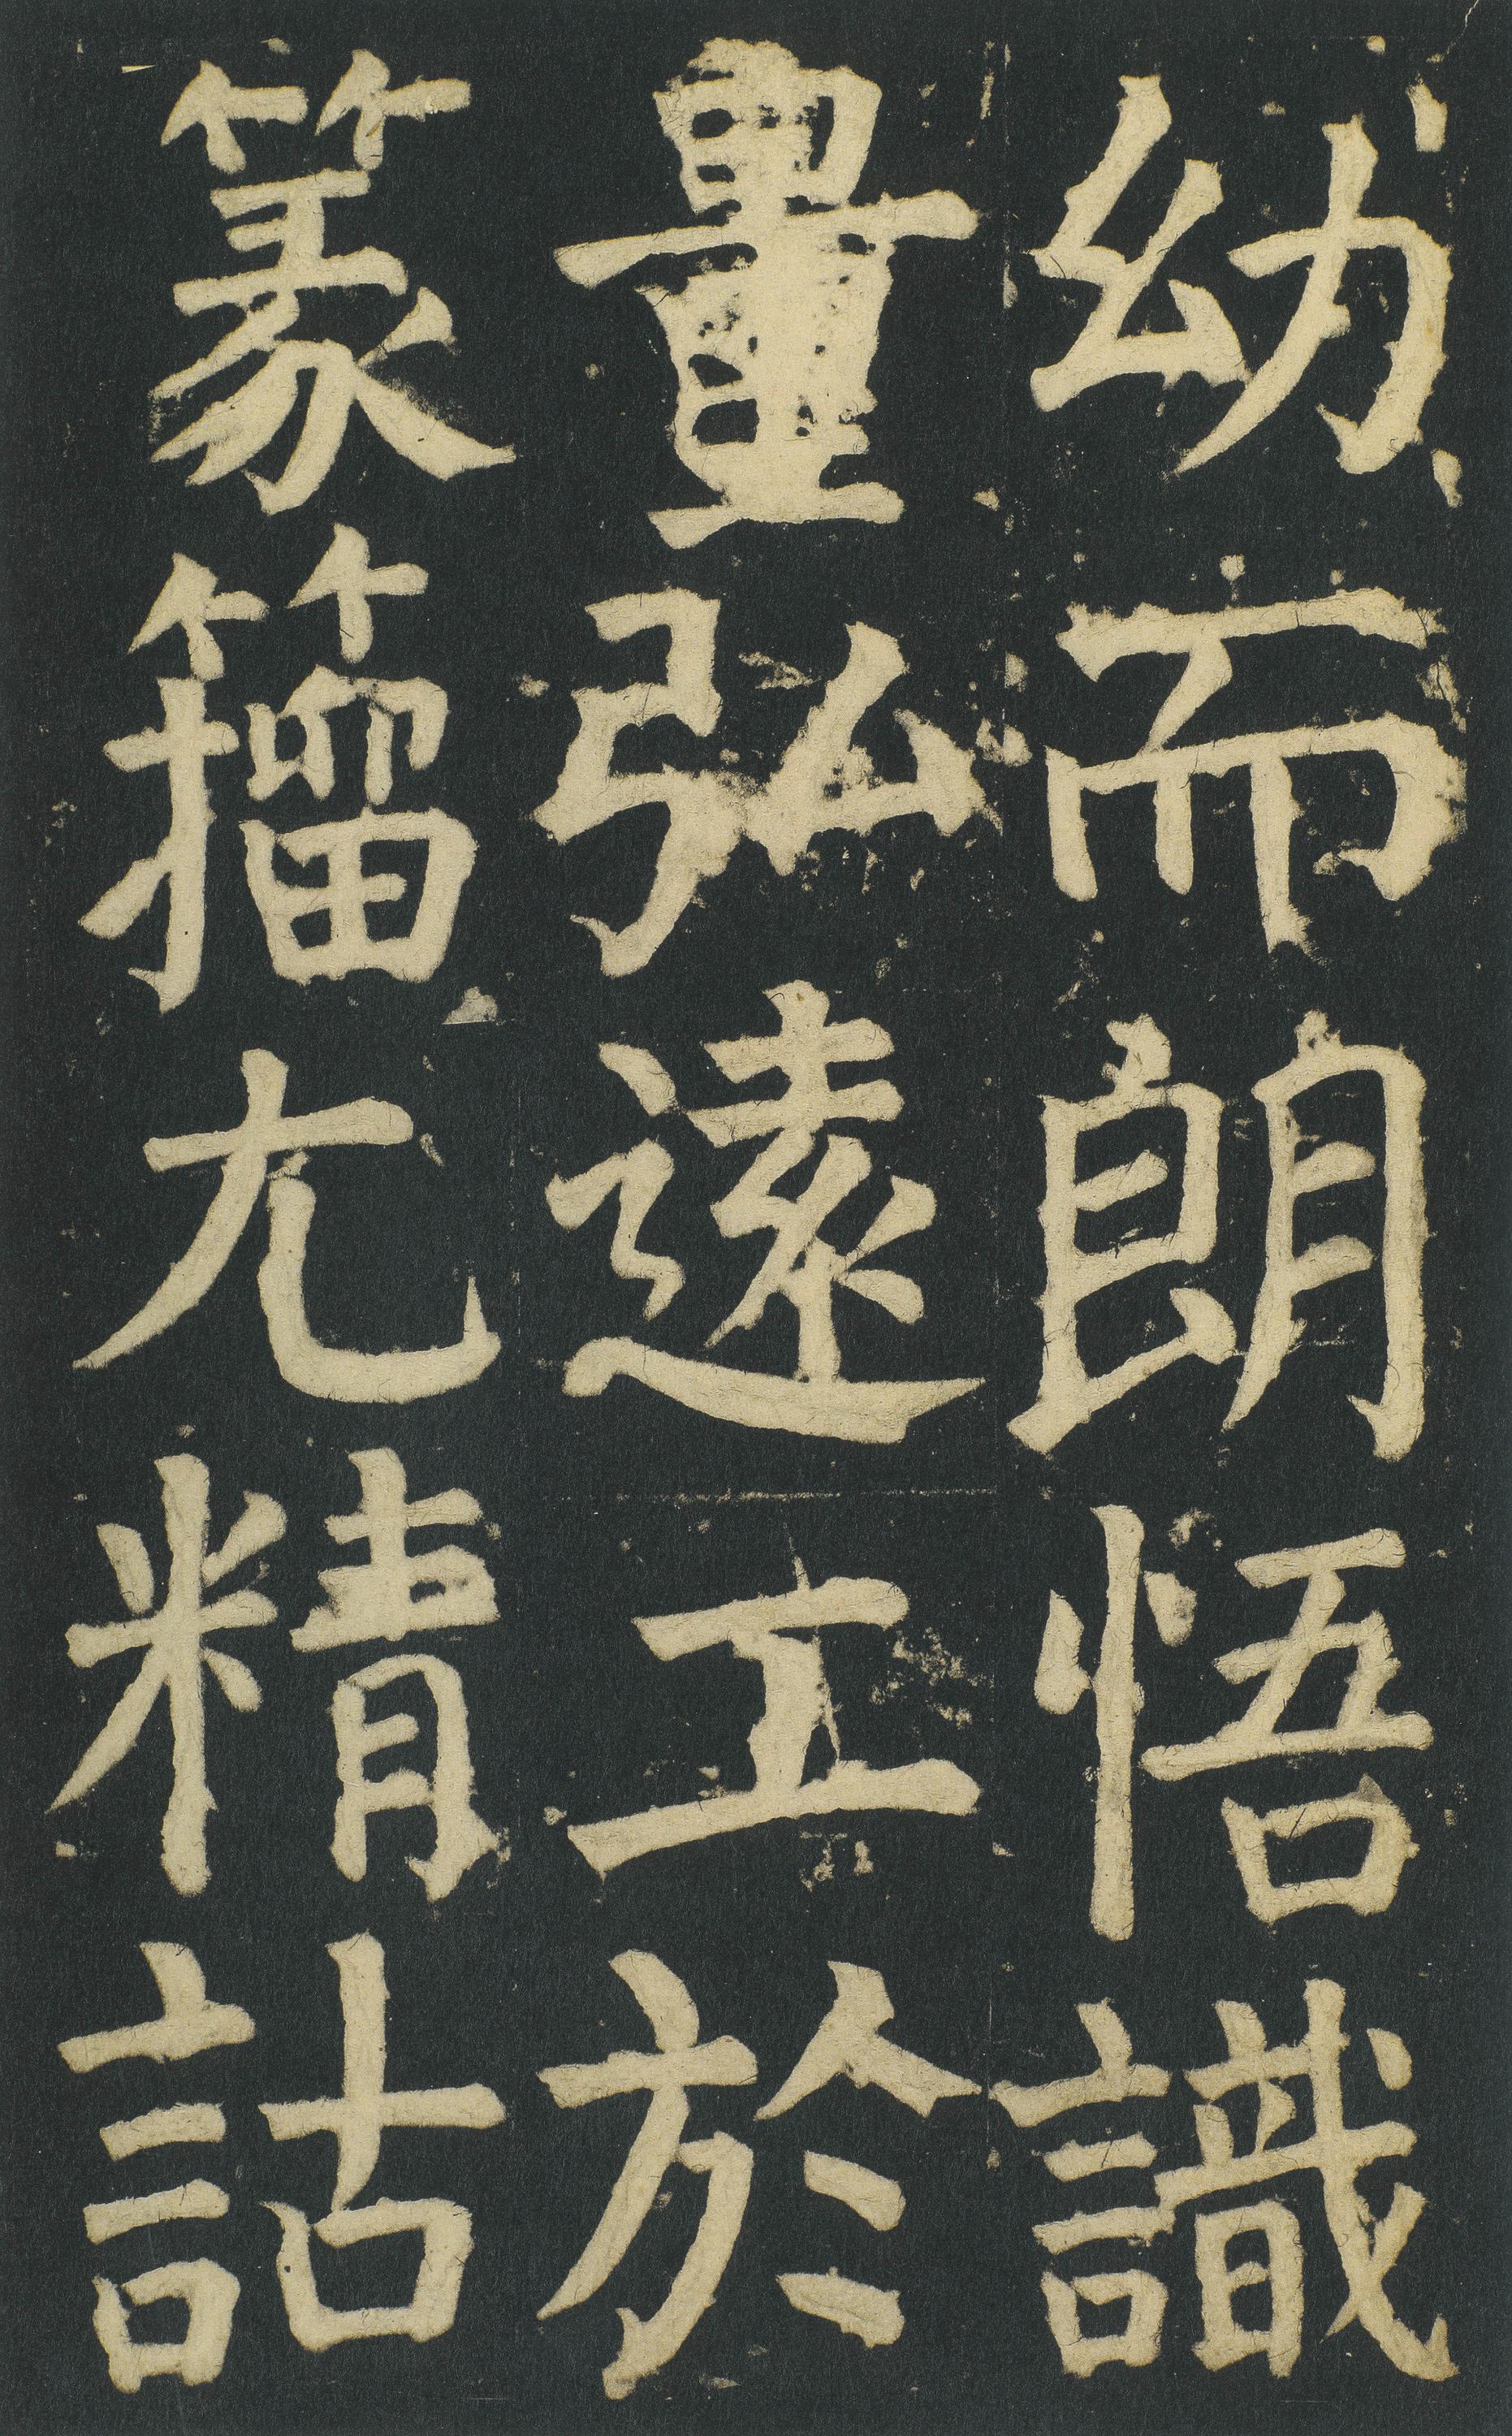 幼而朗悟識
量弘遠工於
篆籀尤精詁